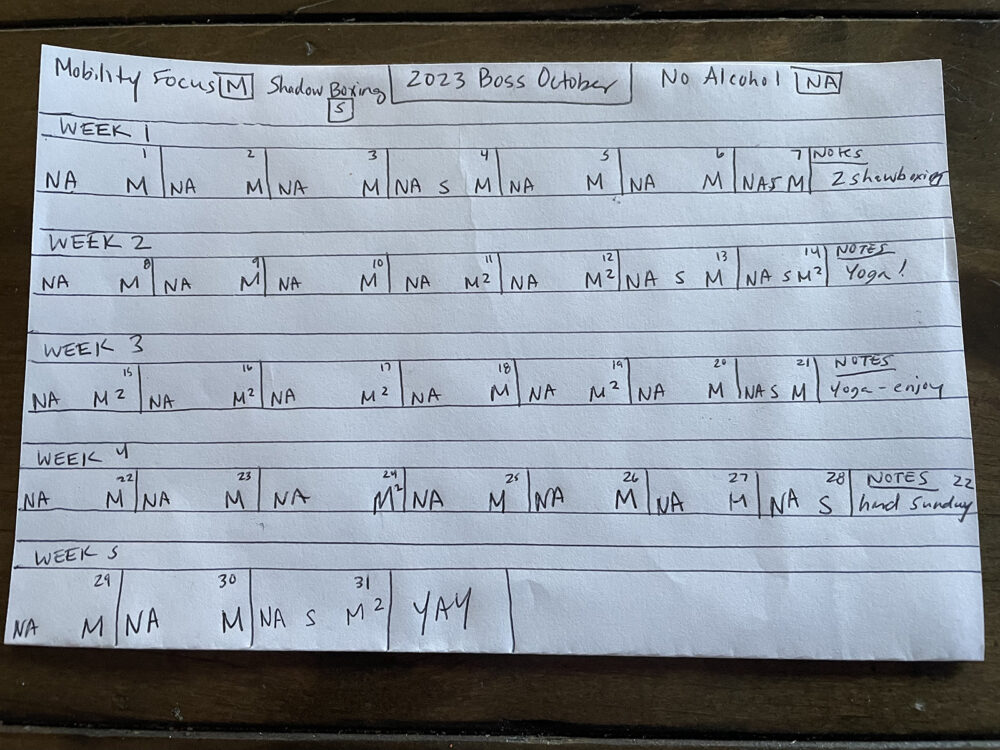 Mobility Focus M Shadow Boxing S 2023 Boss October No Alcohol NA
WEEK 1
1 2 3 4 5 6 7 NOTES
NA M NA M NA M NA S M NA M NA M NA S M 2 showboxing
WEEK 2
8 9 10 11 12 13 14 NOTES
NA M NA M NA M NA M² NA M² NA S M NA S M² Yoga!
WEEK 3
15 16 17 18 19 20 21 NOTES
NA M² NA M² NA M² NA M NA M² NA M NA S M Yoga - enjoy
WEEK 4
22 23 24 25 26 27 28 NOTES 22
NA M NA M NA M² NA M NA M NA M NA S hard Sunday
WEEK 5
29 30 31
NA M NA M NA S M² YAY